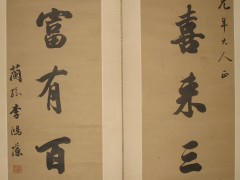 年大人正
喜来三
富有百
蘭孫李鴻藻